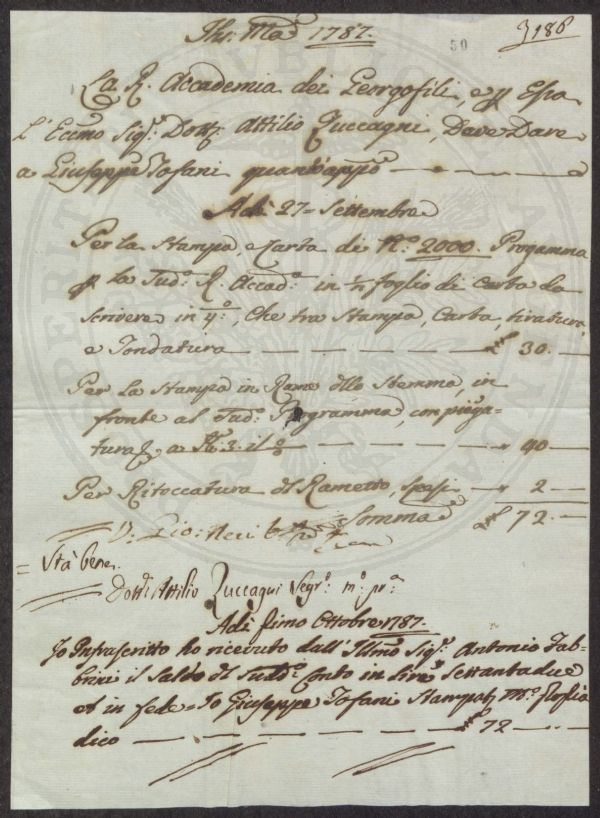 Jhs. Maê 1787.
3186
50
La R. Accademia dei Georgofili, e p Essa
L'Eccmo Sigr: Dottr. Attilio Zuccagni, Deve Dare
a Giuseppe Tofani quant'appo
Adì 27= Settembre
Per la Stampa, e Carta di No. 2000. Progamma
p la Sudo. R. Accado. in foglio di Carta da
scrivere in 4o:, che tra Stampa, Carta, tiratura,
e Tondatura 30.
Per la Stampa in Rame dllo Stemma, in
fronte al Sudo. Programma, con piega-
tura a 3. il 40
Per Ritoccatura dl Rametto, spese 2
Somma 72.
V: Gio: Neri
= Stà bene,
Dottr: Attilio Zuccagni Segro: mo: pro:
Adì primo Ottobre 1787.
Io Infrascritto ho ricevuto dall'Illmo Sigr: Antonio Fab-
brini il Saldo dl Sudo: Conto in Lire Settantadue
et in fede= Io Giuseppe Tofani Stampatr
dico 72
PROSPERITATI PUBLICAE AUGENDAE